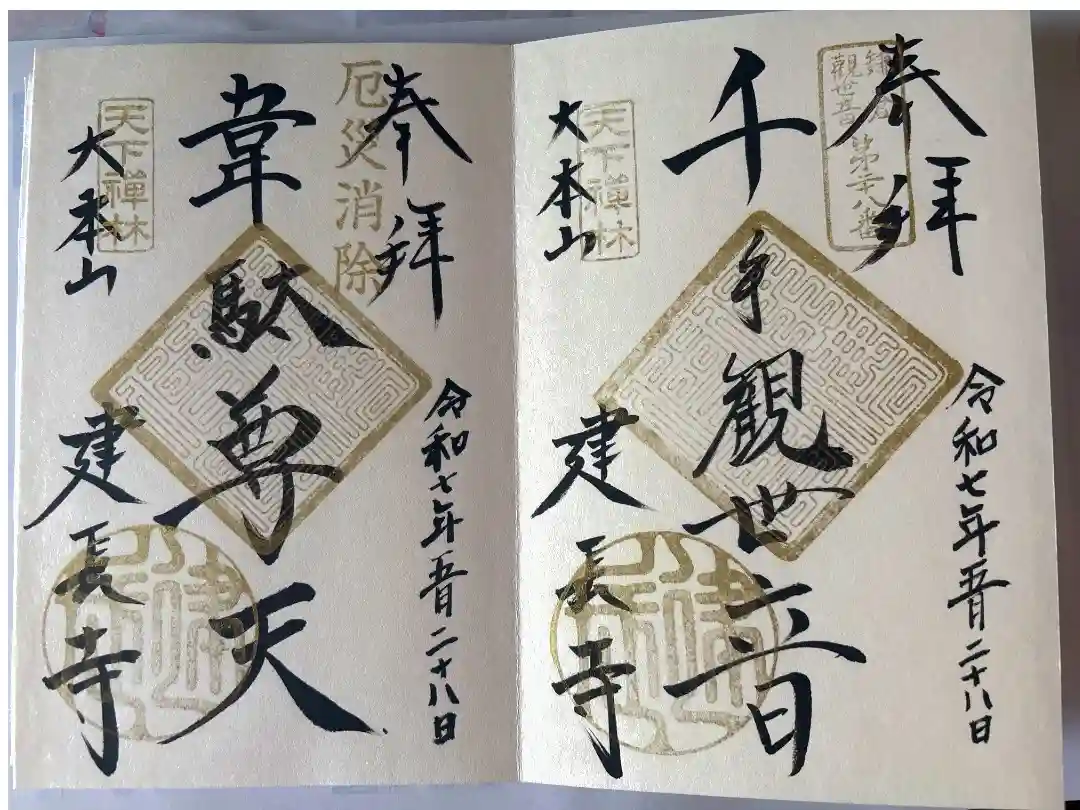 奉拝
鎌倉
観世音
第二十八番
千手観世音
令和七年五月二十八日
天下禅林
大本山
建長寺
奉拝
厄災消除
韋駄尊天
令和七年五月二十八日
天下禅林
大本山
建長寺